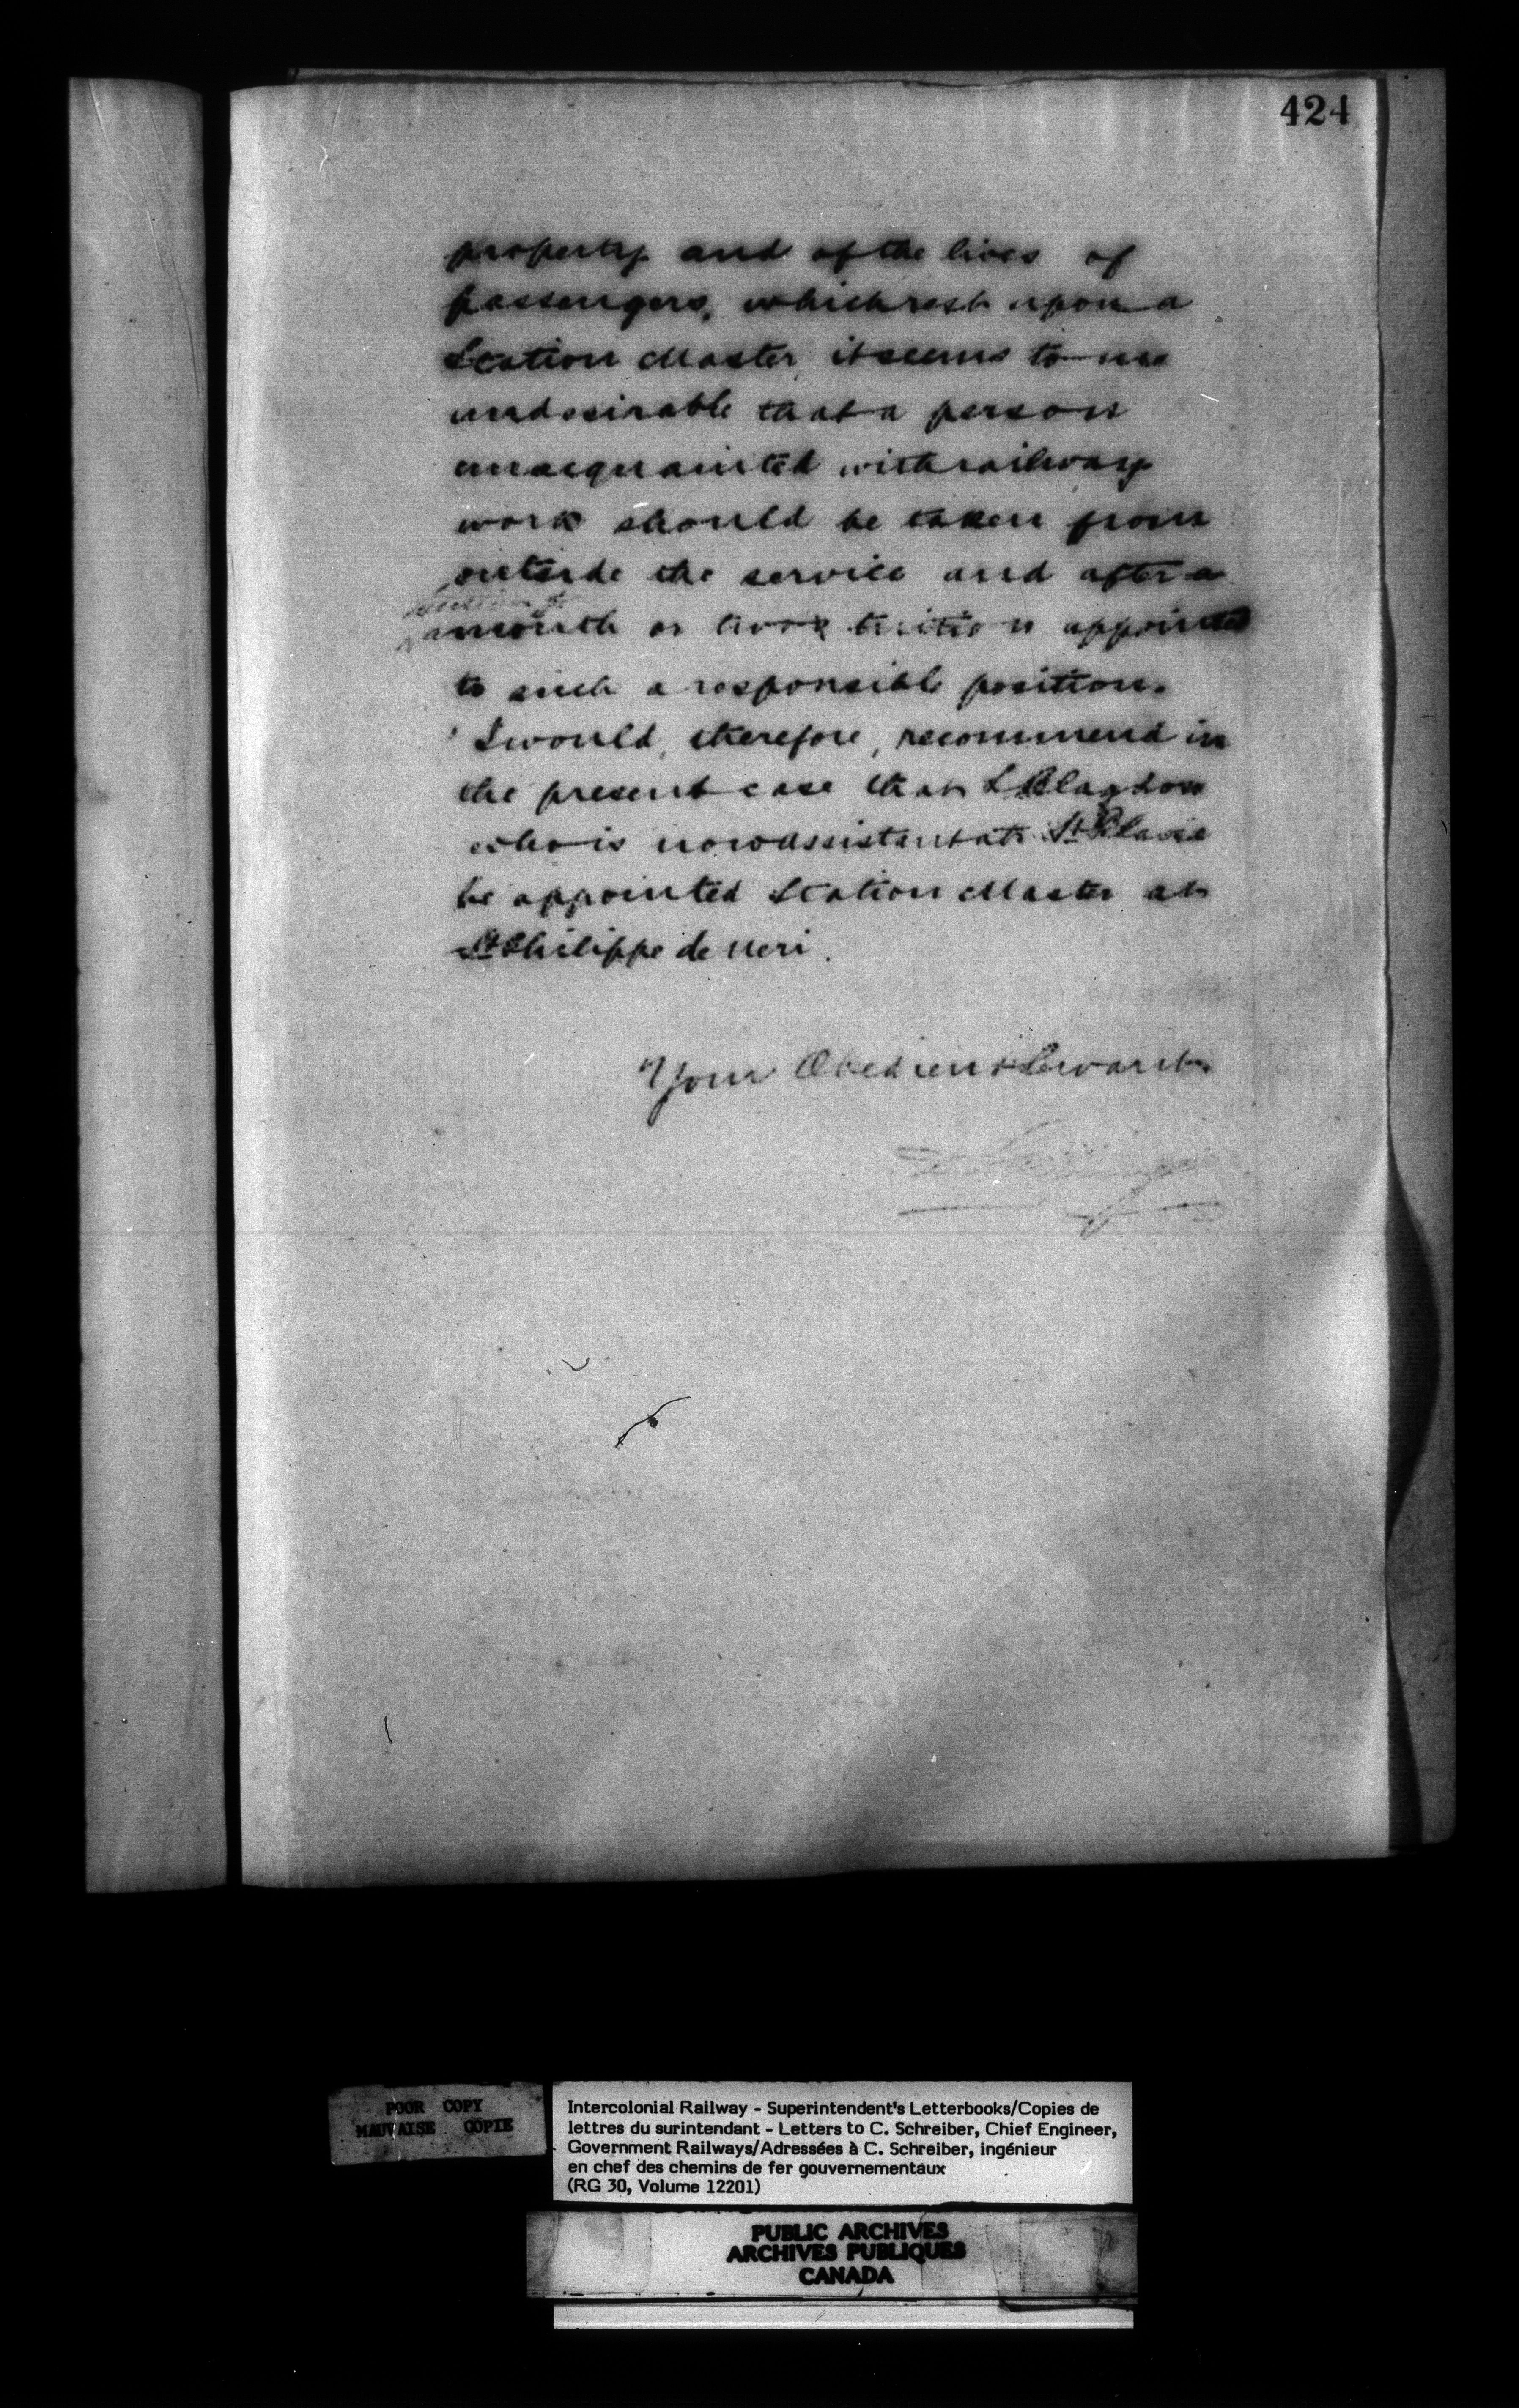 424
property and of the lives of
passengers, which rest upon a
Station Master, it seems to me
undesirable that a person
unacquainted with railway
work should be taken from
outside the service and after a
month or two's tuition appointed
to such a responsible position.
I would, therefore, recommend in
the present case that L Blagdon
who is now assistant at St
be appointed Station Master at
St Philippe de Neri.
Your Obedient Servant
POOR COPY
MAUVAISE COPIE
Intercolonial Railway - Superintendent's Letterbooks/Copies de
lettres du surintendant - Letters to C. Schreiber, Chief Engineer,
Government Railways/Adressées à C. Schreiber, ingénieur
en chef des chemins de fer gouvernementaux
(RG 30, Volume 12201)
PUBLIC ARCHIVES
ARCHIVES PUBLIQUES
CANADA